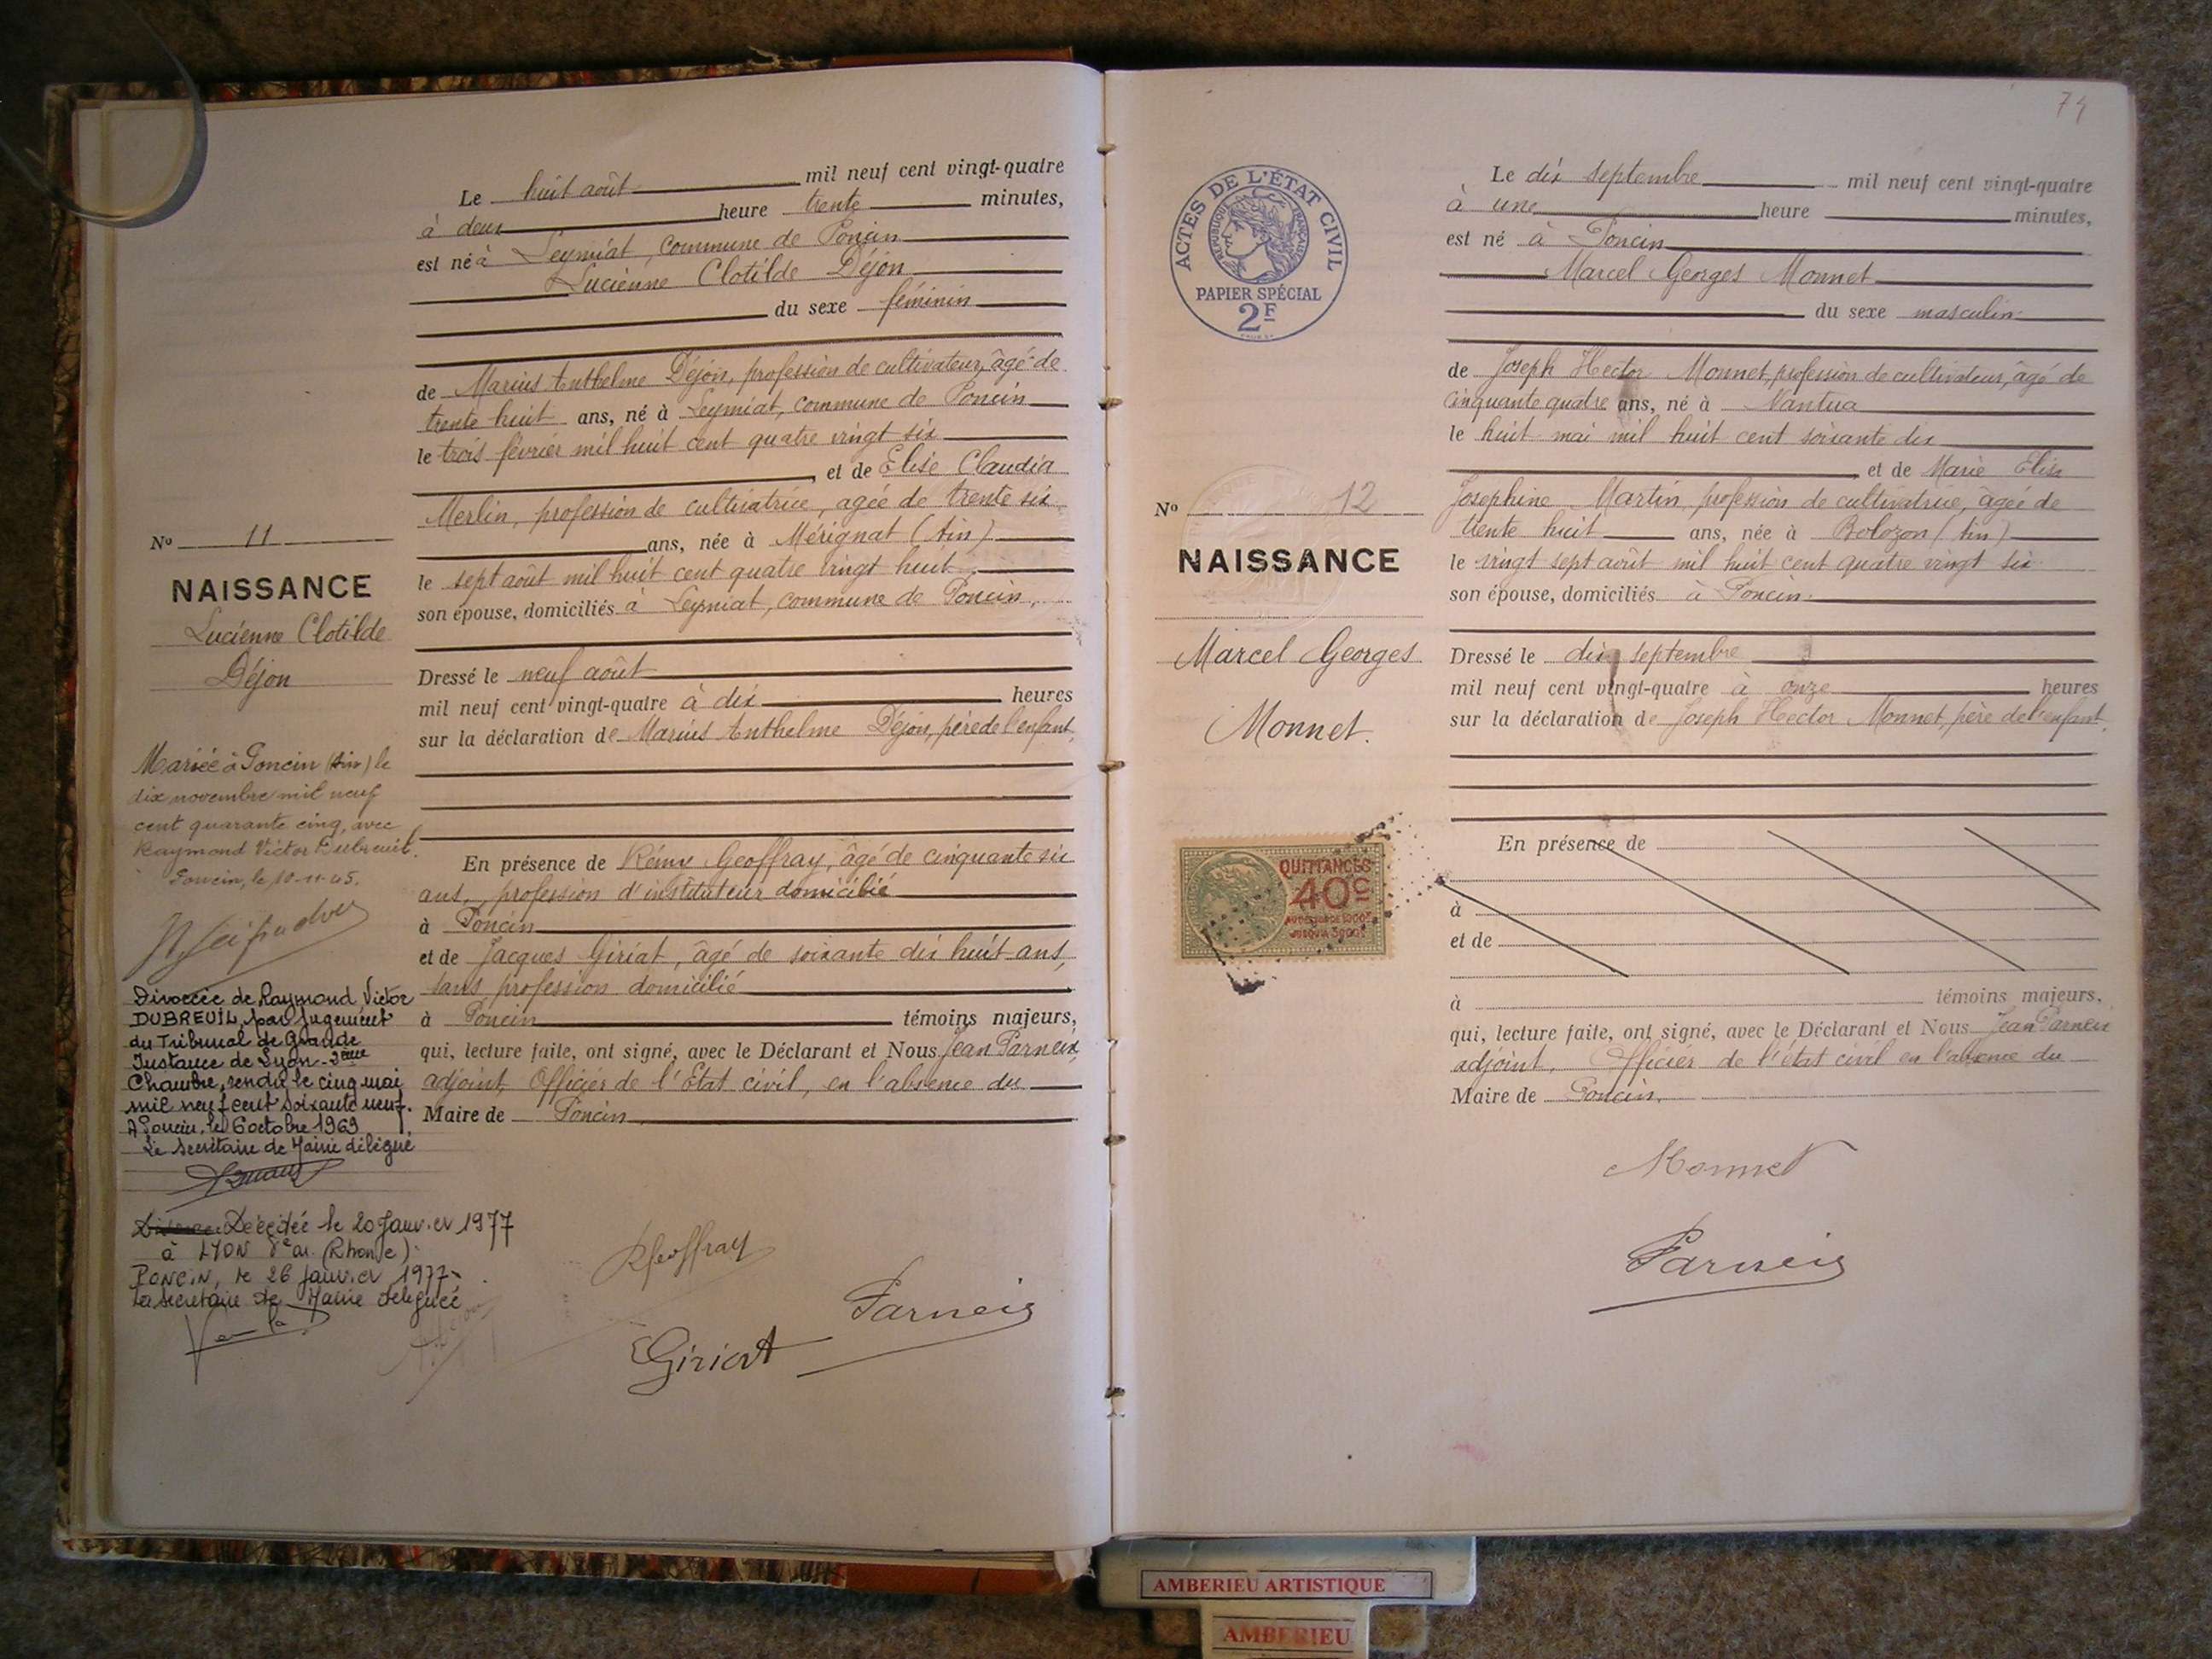 Le huit août mil neuf cent vingt-quatre
à deux heure trente minutes,
est né à Leymiat, commune de Poncin
Lucienne Clotilde Déjon
du sexe féminin
de Marius Anthelme Déjon, profession de cultivateur, âgé de
trente huit ans, né à Leymiat, commune de Poncin
le trois février mil huit cent quatre vingt six
, et de Elise Claudia
Merlin, profession de cultivatrice, agée de trente six
ans, née à Mérignat (Ain)
le sept août mil huit cent quatre vingt huit,
son épouse, domiciliés à Leymiat, commune de Poncin,
Dressé le neuf août
mil neuf cent vingt-quatre à dix heures
sur la déclaration de Marius Anthelme Déjon, père de l'enfant,
En présence de Rémy Geoffray, âgé de cinquante six
ans, profession d'instituteur domicilié
à Poncin
et de Jacques Giriat, âgé de soixante dix huit ans,
sans profession domicilié
à Poncin témoins majeurs,
qui, lecture faite, ont signé, avec le Déclarant et Nous Jean Parneix
adjoint, Officier de l'Etat civil, en l'absence du
Maire de Poncin
RGeoffray
Parneix
Giriat
No 11
NAISSANCE
Lucienne Clotilde
Déjon
Mariée à Poncin (Ain) le
dix novembre mil neuf
cent quarante cinq, avec
Raymond Victor Dubreuil.
Poncin, le 10-11-45.
Divorcée de Raymond Victor
DUBREUIL, par jugement
du Tribunal de Grande
Instance de Lyon - 2ème
Chambre, rendu le cinq mai
mil neuf cent soixante neuf.
A Poncin, le 6 octobre 1969
Le Secrétaire de Mairie délégué
Décédée le 20 Janvier 1977
à LYON 8e ar. (Rhône).
PONCIN, le 26 Janvier 1977
La secrétaire de Mairie déléguée
74
ACTES DE L'ÉTAT CIVIL
RÉPUBLIQUE FRANÇAISE
PAPIER SPÉCIAL
2F
Le dix septembre mil neuf cent vingt-quatre
à une heure minutes,
est né à Poncin
Marcel Georges Monnet
du sexe masculin
de Joseph Hector Monnet, profession de cultivateur, âgé de
cinquante quatre ans, né à Nantua
le huit mai mil huit cent soixante dix
et de Marie Elisa
Josephine Martin, profession de cultivatrice, âgée de
trente huit ans, née à Bolozon (Ain)
le vingt sept août mil huit cent quatre vingt six
son épouse, domiciliés à Poncin.
Dressé le dix septembre
mil neuf cent vingt-quatre à onze heures
sur la déclaration de Joseph Hector Monnet, père de l'enfant,
En présence de
à
et de
à témoins majeurs,
qui, lecture faite, ont signé, avec le Déclarant et Nous Jean Parneix
adjoint, Officier de l'état civil en l'absence du
Maire de Poncin.
Monnet
Parneix
No 12
NAISSANCE
Marcel Georges
Monnet.
QUITTANCES
40c
AMBERIEU ARTISTIQUE
AMBERIEU